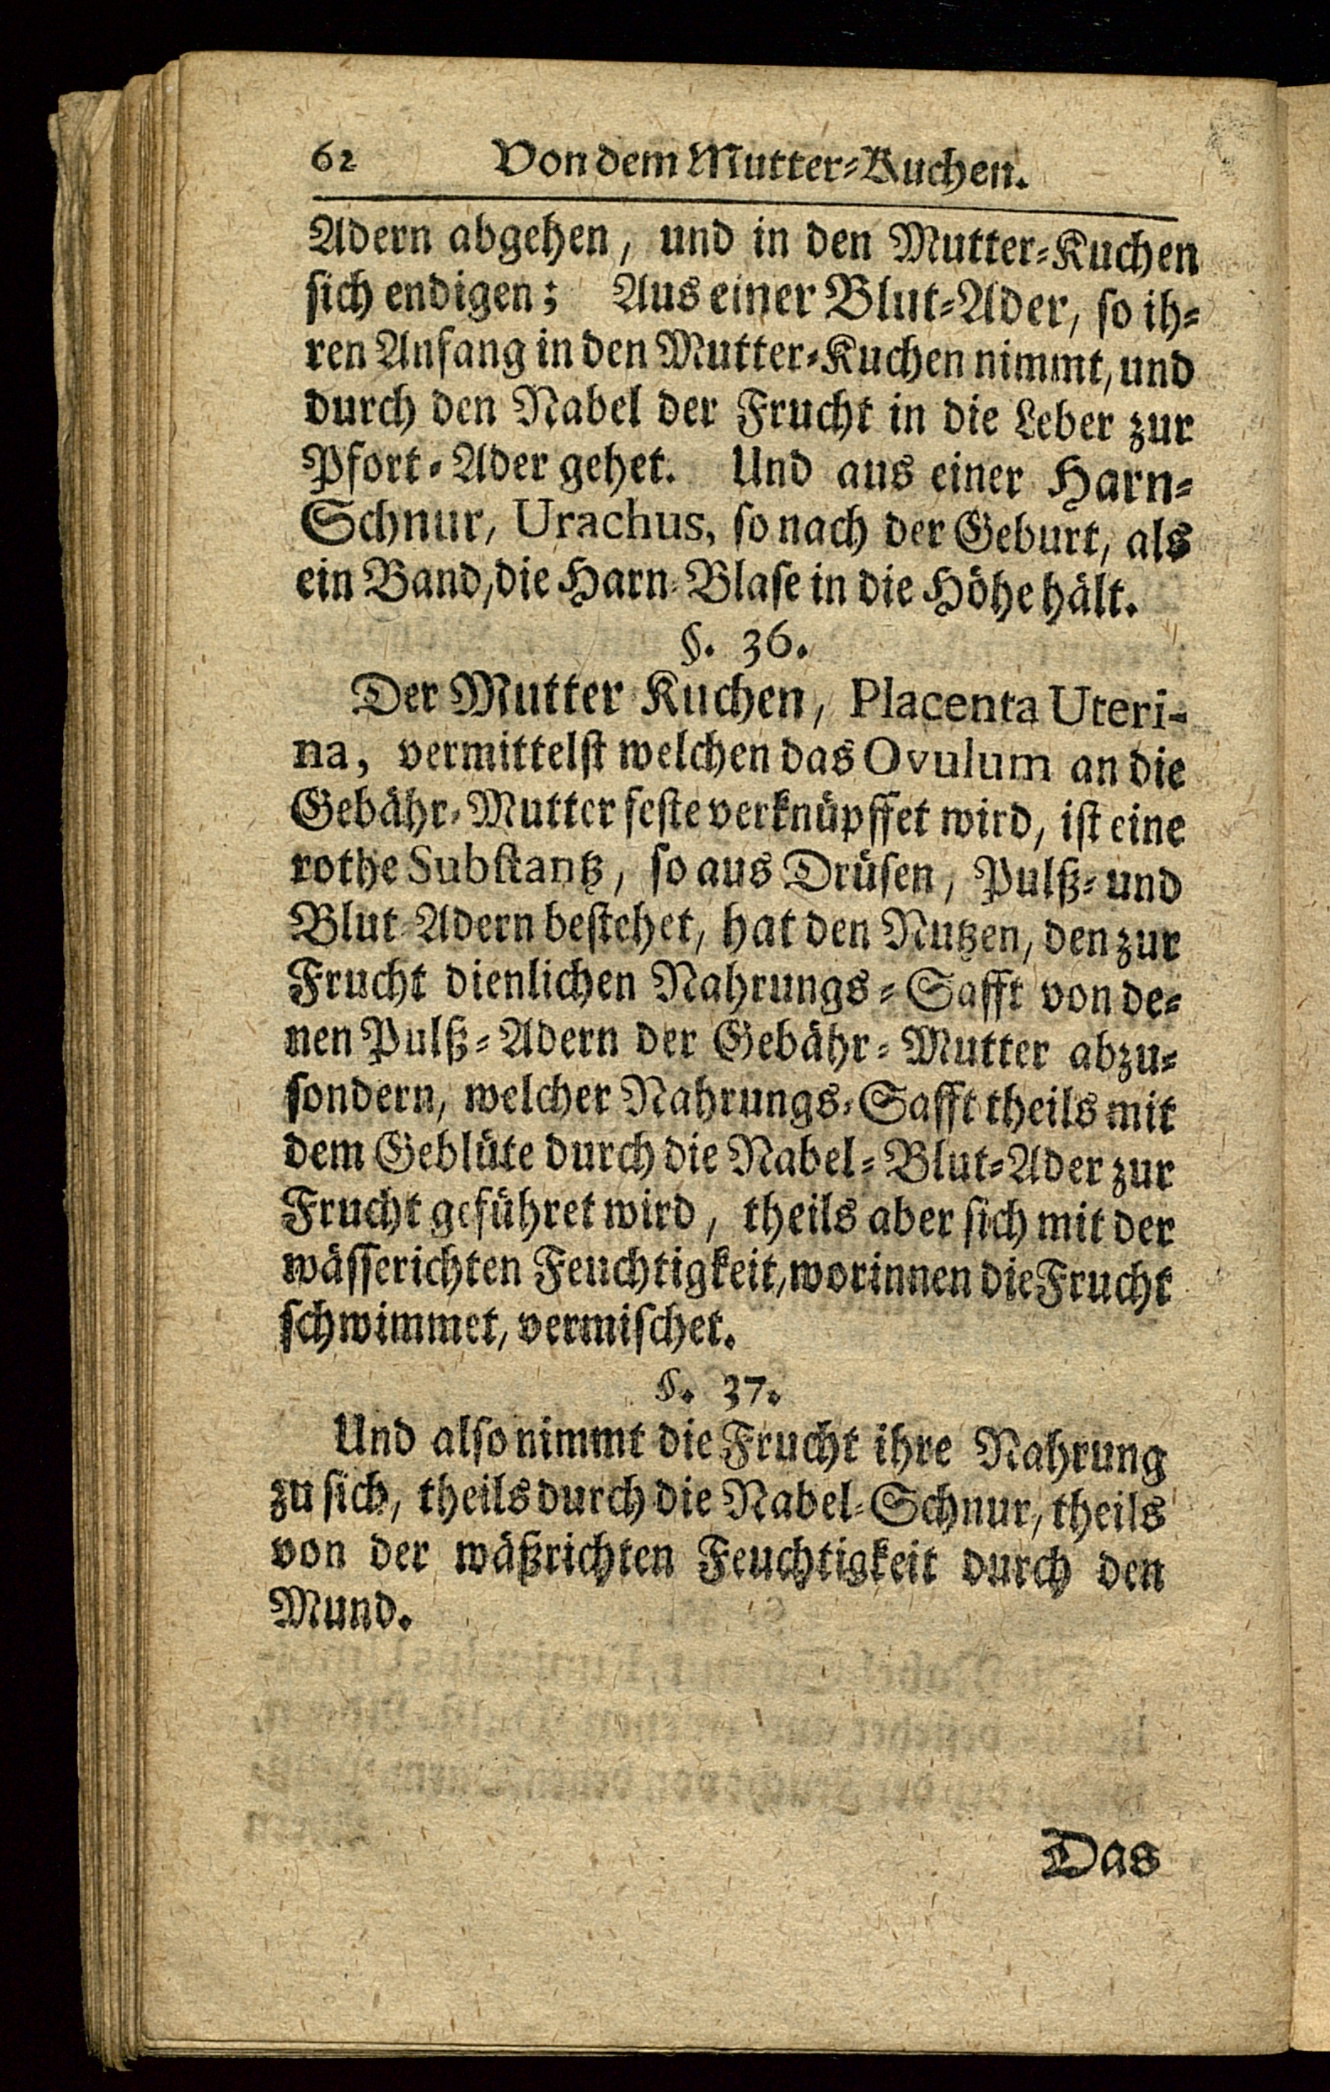 62 Von dem Mutter-Kuchen.
Adern abgehen, und in den Mutter-Kuchen
sich endigen; Aus einer Blut-Ader, so ih-
ren Anfang in den Mutter-Kuchen nimmt, und
durch den Nabel der Frucht in die Leber zur
Pfort-Ader gehet. Und aus einer Harn-
Schnur, Urachus, so nach der Geburt, als
ein Band, die Harn-Blase in die Höhe hält.
§. 36.
Der Mutter Kuchen, Placenta Uteri-
na, vermittelst welchen das Ovulum an die
Gebähr-Mutter feste verknüpffet wird, ist eine
rothe Substantz, so aus Drüsen, Pulß- und
Blut-Adern bestehet, hat den Nutzen, den zur
Frucht dienlichen Nahrungs-Safft von de-
nen Pulß-Adern der Gebähr-Mutter abzu-
sondern, welcher Nahrungs-Safft theils mit
dem Geblüte durch die Nabel-Blut-Ader zur
Frucht geführet wird, theils aber sich mit der
wässerichten Feuchtigkeit, worinnen die Frucht
schwimmet, vermischet.
§. 37.
Und also nimmt die Frucht ihre Nahrung
zu sich, theils durch die Nabel-Schnur, theils
von der wäßrichten Feuchtigkeit durch den
Mund.
Das